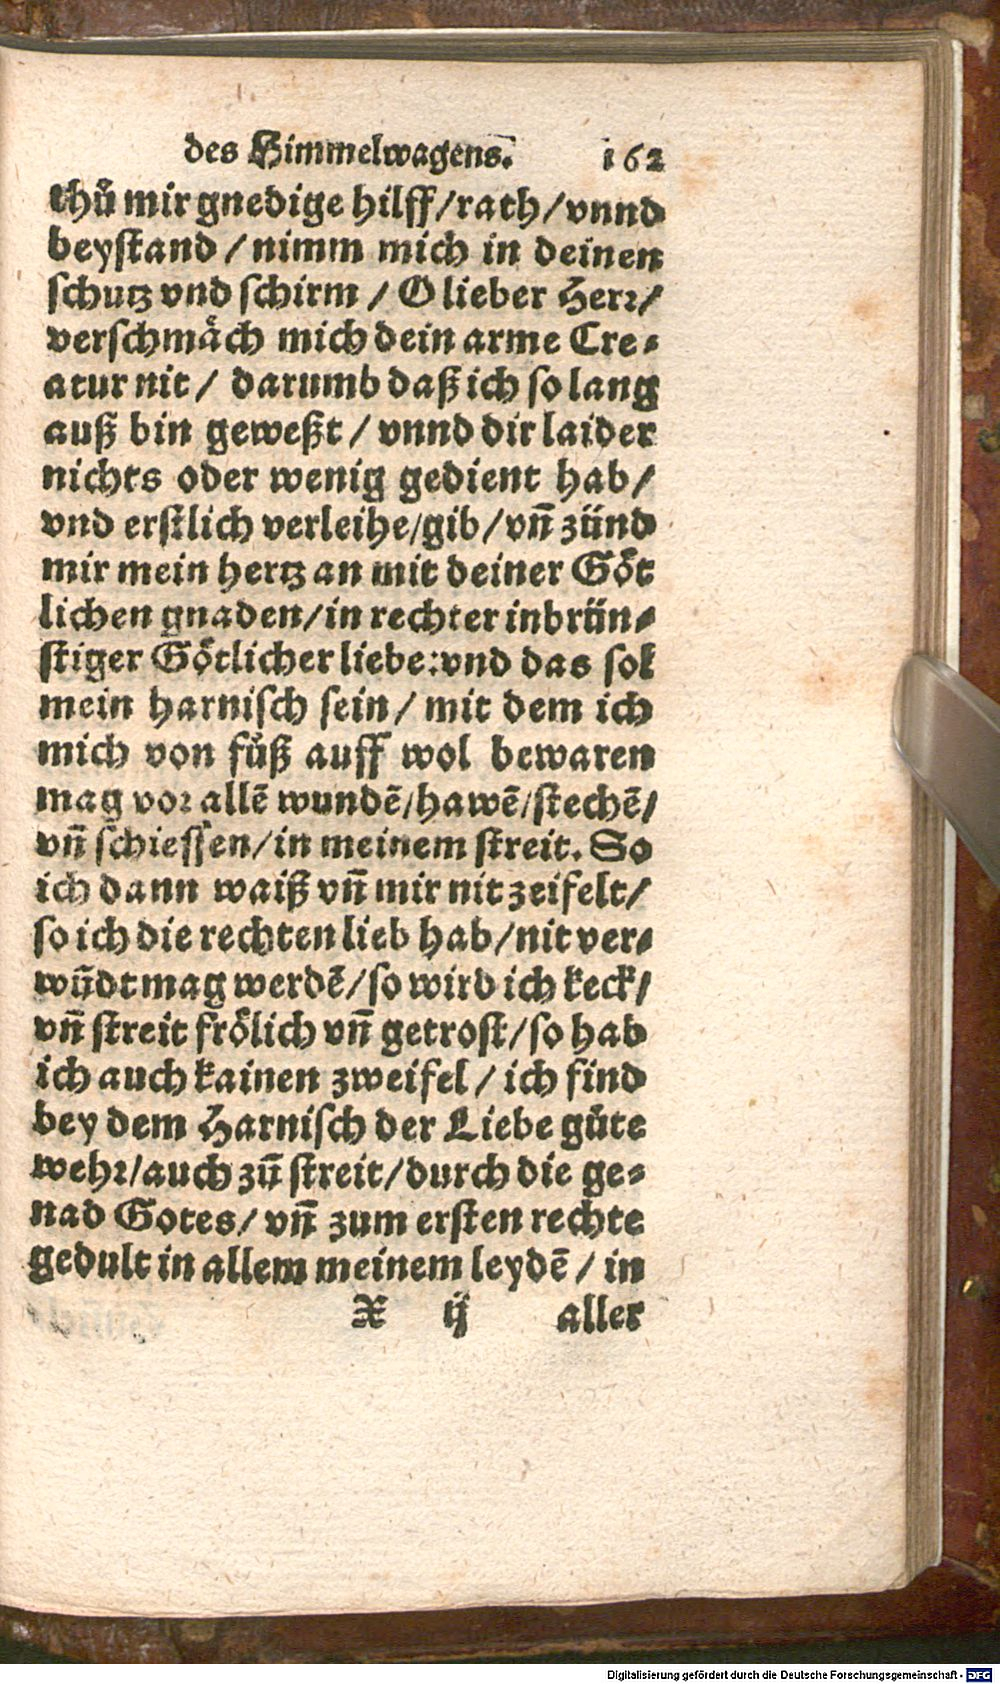 des Himmelwagens. 162
thů mir gnedige hilff/rath/vnnd
beystand/nimm mich in deinen
schutz vnd schirm/O lieber Herr/
verschmåch mich dein arme Cre⸗
atur nit/ darumb daß ich so lang
auß bin geweßt/vnnd dir laider
nichts oder wenig gedient hab/
vnd erstlich verleihe/gib/vñ zünd
mir mein hertz an mit deiner Göt
lichen gnaden/in rechter inbrün⸗
stiger Götlicher liebe:vnd das sol
mein harnisch sein/mit dem ich
mich von fůß auff wol bewaren
mag vor allẽ wundẽ/hawẽ/stechẽ/
vñ schiessen/in meinem streit. So
ich dann waiß vñ mir nit zeifelt/
so ich die rechten lieb hab/nit ver⸗
wũdt mag werdẽ/so wird ich keck/
vñ streit frölich vñ getrost/so hab
ich auch kainen zweifel/ich find
bey dem Harnisch der Liebe gůte
wehr/auch zũ streit/durch die ge⸗
nad Gotes/vñ zum ersten rechte
gedult in allem meinem leydẽ/in
X ij aller
Digitalisierung gefördert durch die Deutsche Forschungsgemeinschaft - DFG